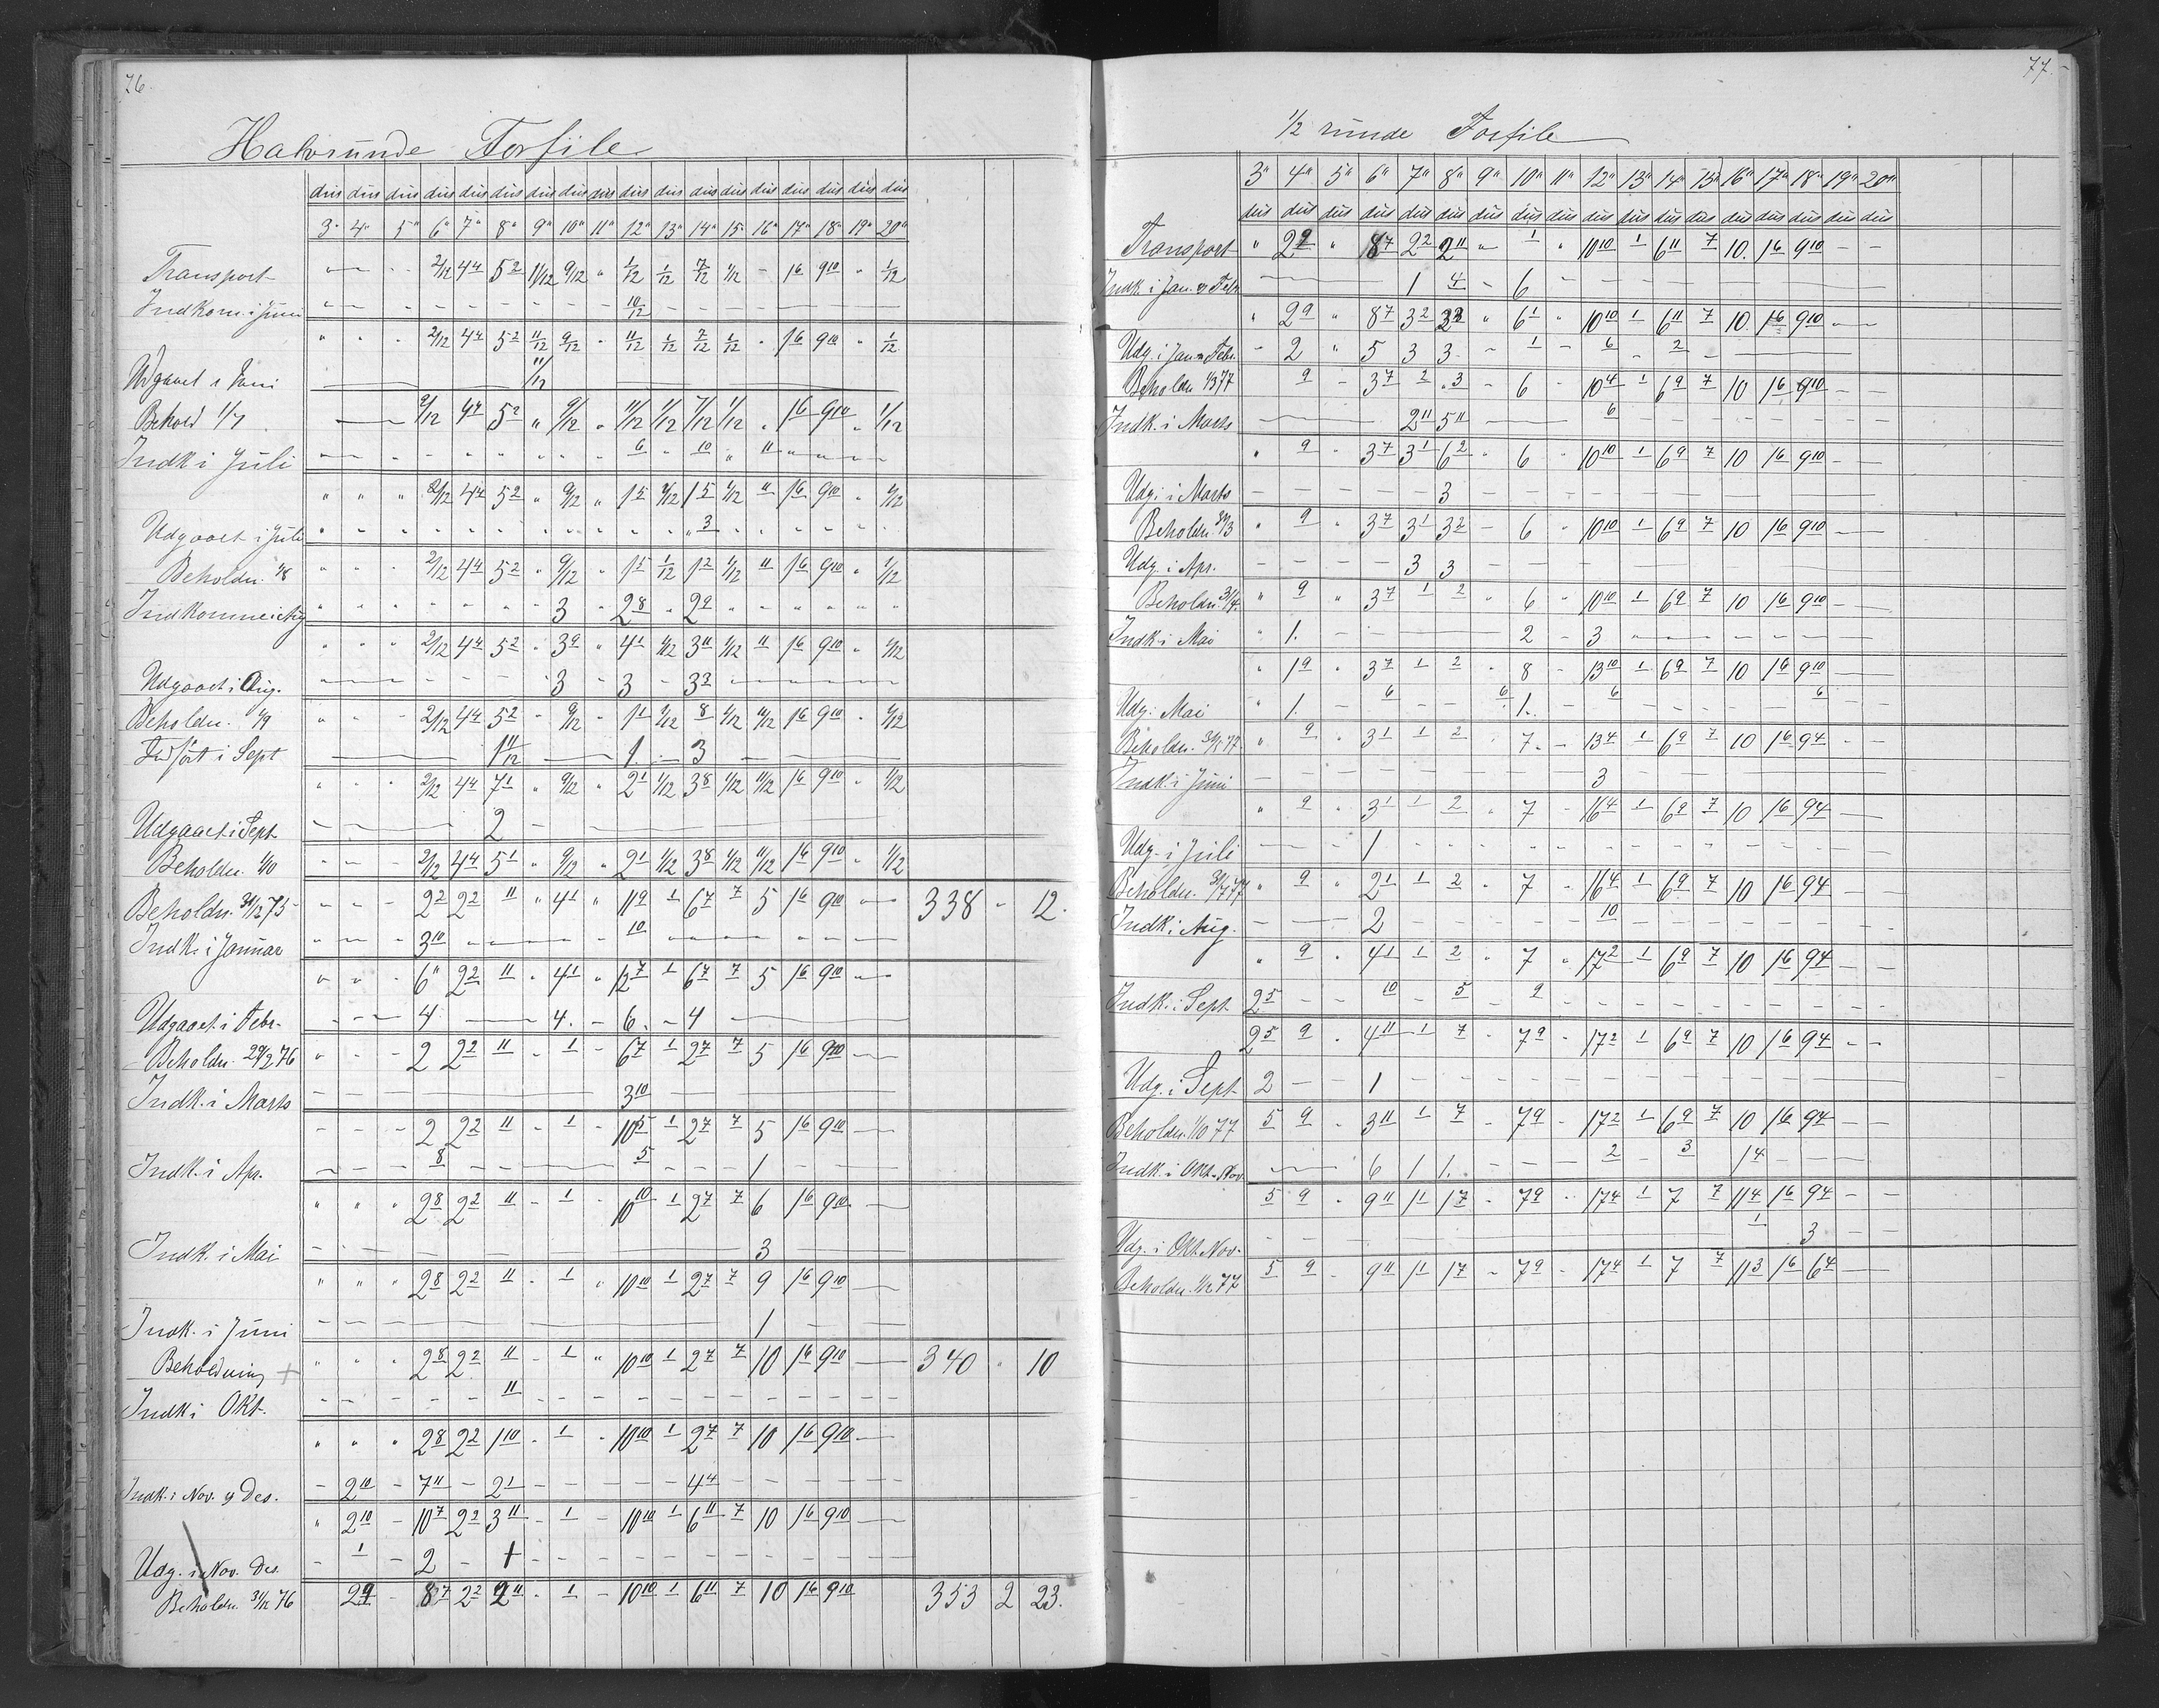 76.
Halvrunde Forfile
dus dus dus dus dus dus dus dus dus dus dus dus dus dus dus dus dus dus
3" 4" 5" 6" 7" 8" 9" 10" 11" 12" 13" 14" 15" 16" 17" 18" 19" 20"
Transport " — - 2/12 4 4 5 2 11/12 9/12 " 1/12 1/12 7/12 1/12 - 1 6 9 10 " 1/12
Indkom i Juni 10/12
" " " 2/12 4 4 5 2 11/12 9/12 - 11/12 1/12 7/12 1/12 " 1 6 9 10 " 1/12
Udgaaet i Juni 11/12
Behold 1/7 2/12 4 4 5 2 " 9/12 " 11/12 1/12 7/12 1/12 " 1 6 9 10 " 1/12
Indk i Juli 6 " 10 " 11
" " " 2/12 4 4 5 2 " 9/12 " 1 5 1/12 1 5 1/12 11 1 6 9 10 " 1/12
Udgaaet i Juli 3
Beholdn. 1/8 " " " 2/12 4 4 5 2 " 9/12 " 1 5 1/12 1 2 1/12 11 1 6 9 10 " 1/12
Indkomne i Aug 3 " 2 8 " 2 9
" " " 2/12 4 4 5 2 " 3 9 " 4 1 1/12 3 11 1/12 11 1 6 9 10 " 1/12
Udgaaet i Aug. 3 - 3 - 3 3
Beholdn. 1/9 " " - 2/12 4 4 5 2 - 9/12 - 1 1 1/12 8 1/12 11/12 1 6 9 10 " 1/12
Indført i Sept 1 11/12 — 1. — 3
" " " 2/12 4 4 7 1 " 9/12 " 2 1 1/12 3 8 1/12 11/12 1 6 9 10 " 1/12
Udgaaet i Sept 2
Beholdn. 1/10 2/12 4 4 5 1 " 9/12 " 2 1 1/12 3 8 1/12 11/12 1 6 9 10 " 1/12
Beholdn. 31/12 75 - - - 2 2 2 2 11 " 4 1 " 11 9 1 6 7 7 5 1 6 9 10 338 - 12.
Indk. i Januar 3 10 10
" " - 6 11 2 2 11 " 4 1 " 12 7 1 6 7 7 5 1 6 9 10
Udgaaet i Febr. 4 — 4. - 6. - 4
Beholdn. 29/2 76 " - - 2 2 2 11 - 1 - 6 7 1 2 7 7 5 1 6 9 10
Indk. i Marts 3 10
- - - 2 2 2 11 - 1 - 10 5 1 2 7 7 5 1 6 9 10
Indk. i Apr. 8 5 1
" " " 2 8 2 2 11 - 1 - 10 10 1 2 7 7 6 1 6 9 10
Indk. i Mai 3
" " " 2 8 2 2 11 - 1 " 10 10 1 2 7 7 9 1 6 9 10
Indk. i Juni 1
Beholdning + " " " 2 8 2 2 11 - 1 " 10 10 1 2 7 7 10 1 6 9 10 340 " 10
Indk i Okt. 11
" " " 2 8 2 2 1 10 - 1 - 10 10 1 2 7 7 10 1 6 9 10
Indk. i Nov. og Des. - 2 10 - 7 11 - 2 1 - - - - - 4 4
" 2 10 - 10 7 2 2 3 11 - 1 - 10 10 1 6 11 7 10 1 6 9 10
Udg. i Nov. Des. - 1 - 2 - 1
Beholdn. 31/12 76 2 9 - 8 7 2 2 2 11 - 1 - 10 10 1 6 11 7 10 1 6 9 10 353 2 23.
77.
1/2 runde Forfile
3" 4" 5" 6" 7" 8" 9" 10" 11" 12" 13" 14" 15" 16" 17" 18" 19" 20"
dus dus dus dus dus dus dus dus dus dus dus dus dus dus dus dus dus dus
Transport " 2 9 " 8 7 2 2 2 11 " 1 " 10 10 1 6 11 7 10. 1 6 9 10 - -
Indk. i Jan. og Febr 1 4 - 6
" 2 9 " 8 7 3 2 3 3 " 6 1 " 10 10 1 6 11 7 10. 1 6 9 10
Udg. i Jan og Febr. - 2 " 5 3 3 - 1 - 6 - 2
Beholdn 1/3 77 9 - 3 7 2 3 - 6 - 10 4 1 6 9 7 10 1 6 9 10 - -
Indk. i Marts 2 11 5 11 6
" 9 " 3 7 3 1 6 2 " 6 " 10 10 1 6 9 7 10 1 6 9 10 - -
Udg. i Marts 3
Beholdn. 31/3 " 9 " 3 7 3 1 3 2 - 6 " 10 10 1 6 9 7 10 1 6 9 10
Udg. i Apr. 3 3
Beholdn. 31/4. " 9 " 3 7 1 2 " 6 " 10 10 1 6 9 7 10 1 6 9 10
Indk. i Mai " 1. 2 - 3
" 1 9 " 3 7 1 2 " 8 - 13 10 1 6 9 7 10 1 6 9 10
Udg. Mai " 1. - 6 6 1. 6 6
Beholdn. 31/5 77 " 9 " 3 1 1 2 - 7. - 13 4 1 6 9 7 10 1 6 9 4 - -
Indk. i Juni 3
" 9 " 3 1 1 2 " 7 - 16 4 1 6 9 7 10 1 6 9 4
Udg. i Juli 1
Beholdn. 31/7 77 " 9 " 2 1 1 2 " 7 - 16 4 1 6 9 7 10 1 6 9 4
Indk. i Aug. 2 10
" 9 " 4 1 1 2 " 7 " 17 2 1 6 9 7 10 1 6 9 4 - -
Indk. i Sept. 2 5 - - 10 - 5 - 2
2 5 9 - 4 11 1 7 - 7 9 - 17 2 1 6 9 7 10 1 6 9 4 - -
Udg. i Sept. 2 - - 1
Beholdn. 1/10 77 5 9 - 3 11 1 7 - 7 9 - 17 2 1 6 9 7 10 1 6 9 4 - -
Indk. i Okt. Nov. 6 1 1. 2 - 3 1 4
5 9 - 9 11 1 1 1 7 - 7 9 - 17 4 1 7 7 11 4 1 6 9 4 - -
Udg. i Okt Nov. 1 3
Beholdn. 1/12 77 5 9 - 9 11 1 1 1 7 - 7 9 - 17 4 1 7 7 11 3 1 6 6 4